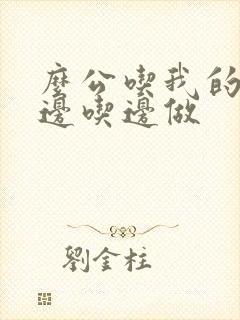 麼公喫我的
邊喫邊做
劉金柱